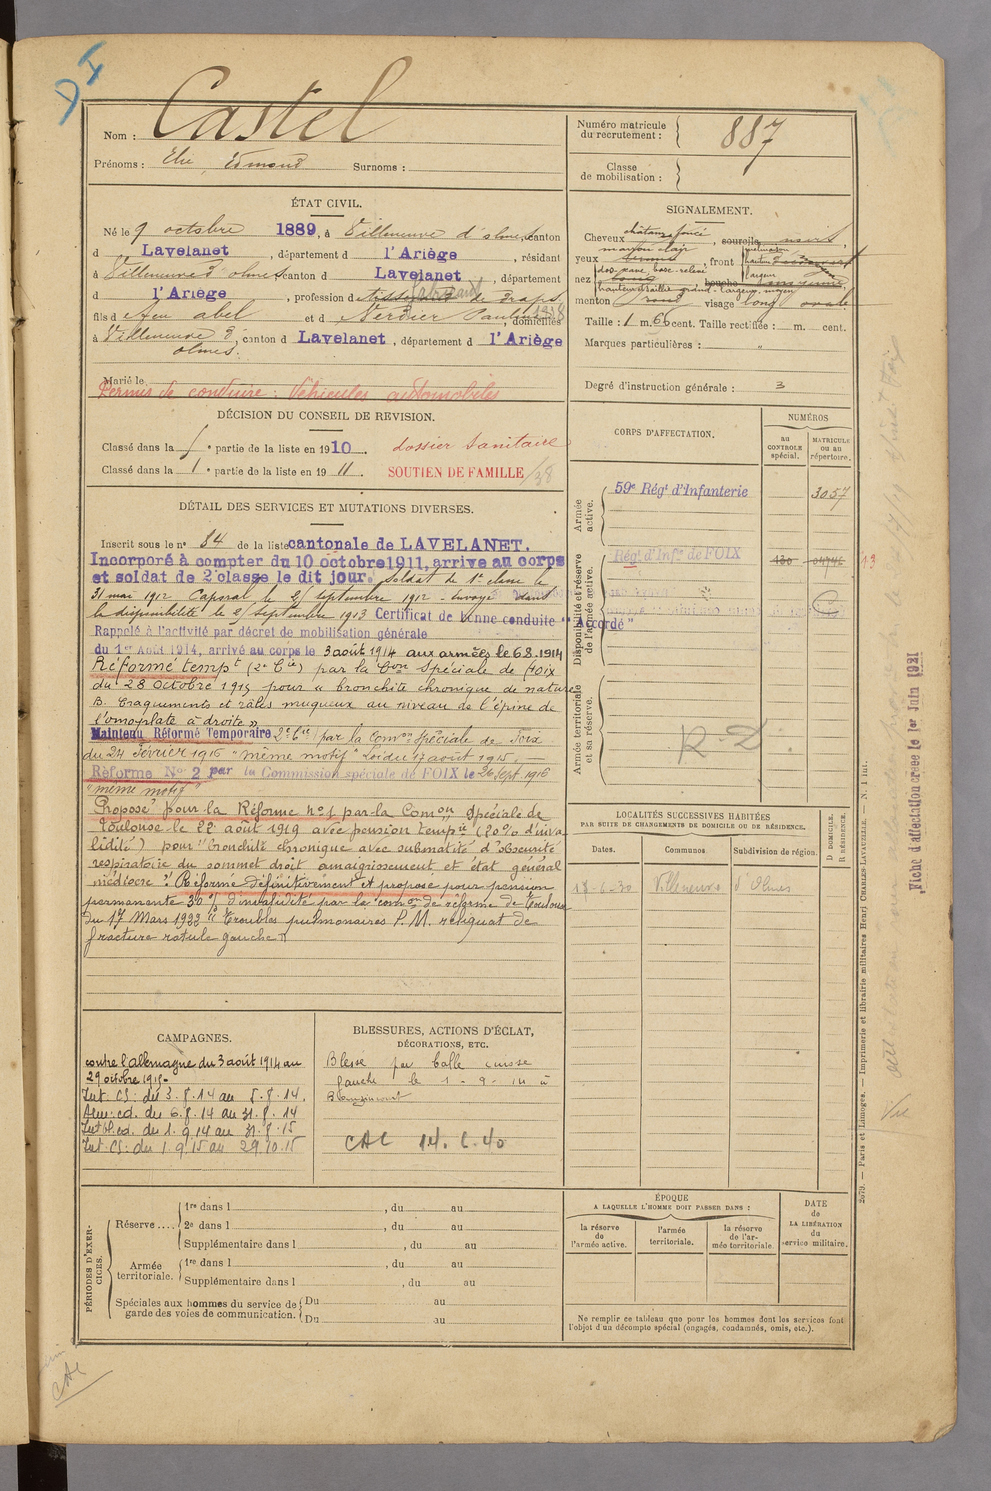 D I
Nom : Castel
Prénoms : Elie, Edmond Surnoms :
Numéro matricule du recrutement : 887
Classe de mobilisation :
ÉTAT CIVIL.
Né le 9 octobre 1889, à Villeneuve d'olmes, canton
d Lavelanet, département d l'Ariège, résidant
à Villeneuve d'olmes canton d Lavelanet, département
d l'Ariège, profession d de draps
fils d feu abel et d Verdier Pauline, domiciliés
à Villeneuve d'olmes, canton d Lavelanet, département d l'Ariège
Marié le
Permis de conduire : Véhicules automobiles
SIGNALEMENT.
Cheveux châtain foncé, sourcils noirs,
yeux marron clair, front
nez dos cave, base relevé
menton rond visage long ovale
Taille : 1 m. 66 cent. Taille rectifiée : m. cent.
Marques particulières : "
Degré d'instruction générale : 3
DÉCISION DU CONSEIL DE REVISION.
Classé dans la 5e partie de la liste en 1910. dossier Sanitaire
Classé dans la 1e partie de la liste en 1911. SOUTIEN DE FAMILLE
DÉTAIL DES SERVICES ET MUTATIONS DIVERSES.
Inscrit sous le no 84 de la liste cantonale de LAVELANET.
Incorporé à compter du 10 octobre 1911, arrivé au corps
et soldat de 2e classe le dit jour. Soldat de 1e classe le
31 mai 1912 Caporal le 21 septembre 1912 - Envoyé dans
la disponibilité le 2 septembre 1913 Certificat de bonne conduite "Accordé"
Rappelé à l'activité par décret de mobilisation générale
du 1er Août 1914, arrivé au corps le 3 août 1914 aux armées le 6 8.1914
Réformé tempt (2e Cie) par la Con Spéciale de Foix
du 28 Octobre 1915 pour " bronchite chronique de nature
B. Craquements et râles muqueux au niveau de l'épine de
l'omoplate à droite "
Maintenu Réformé Temporaire 2e Cie par la Comon Spéciale de Foix
du 24 Février 1916 "même motif" Loi du 17 août 1915. —
Réformé No 2 par la Commission spéciale de FOIX le 26 Sept. 1916
"même motif"
Proposé pour la Réforme no 1 par la Comon Spéciale de
Toulouse le 22 août 1919 avec pension tempre (20% d'inva
lidité) pour "bronchite chronique avec submatité d'obscurité
respiratoire du sommet droit amaigrissement et état général
médiocre" Réformé définitivement et proposé pour pension
permanente 30% d'invalidité par la comon de réforme de Toulouse
du 17 Mars 1922 " troubles pulmonaires P.M. reliquat de
fracture rotule gauche "
CORPS D'AFFECTATION.
NUMÉROS
au CONTROLE spécial.
MATRICULE ou au répertoire.
Armée active.
59e Régt d'Infanterie 3057
Disponibilité et réserve de l'armée active.
Régt d'Infie de FOIX
Armée territoriale et sa réserve.
R. D.
LOCALITÉS SUCCESSIVES HABITÉES
PAR SUITE DE CHANGEMENTS DE DOMICILE OU DE RÉSIDENCE.
Dates. Communes. Subdivision de région. D DOMICILE. R RÉSIDENCE.
17-6-30 Villeneuve d'Olmes
CAMPAGNES.
contre l'allemagne du 3 août 1914 au
29 octobre 1915-
Int: CS: du 3.8.14 au 5.8.14.
Aux: cd. du 6.8.14 au 31.8.14
Int bl. cd. du 1.9.14 au 31.8.15
Int. CS: du 1.9.15 au 29.10.15
BLESSURES, ACTIONS D'ÉCLAT,
DÉCORATIONS, ETC.
Blessé par balle cuisse
gauche le 1-9-14 à
CAC 14.6.40
PÉRIODES D'EXERCICES.
Réserve .... 1re dans l , du au
2e dans l , du au
Supplémentaire dans l , du au
Armée territoriale. 1re dans l , du au
Supplémentaire dans l , du au
Spéciales aux hommes du service de garde des voies de communication. Du au
Du au
ÉPOQUE
A LAQUELLE L'HOMME DOIT PASSER DANS :
la réserve de l'armée active.
l'armée territoriale.
la réserve de l'armée territoriale.
DATE de LA LIBÉRATION du service militaire.
Ne remplir ce tableau que pour les hommes dont les services font
l'objet d'un décompte spécial (engagés, condamnés, omis, etc.).
2679. — Paris et Limoges. — Imprimerie et librairie militaires Henri CHARLES-LAVAUZELLE. — N. 1 int.
"Fiche d'affectation créée le 1er Juin 1921
Vu
CAC